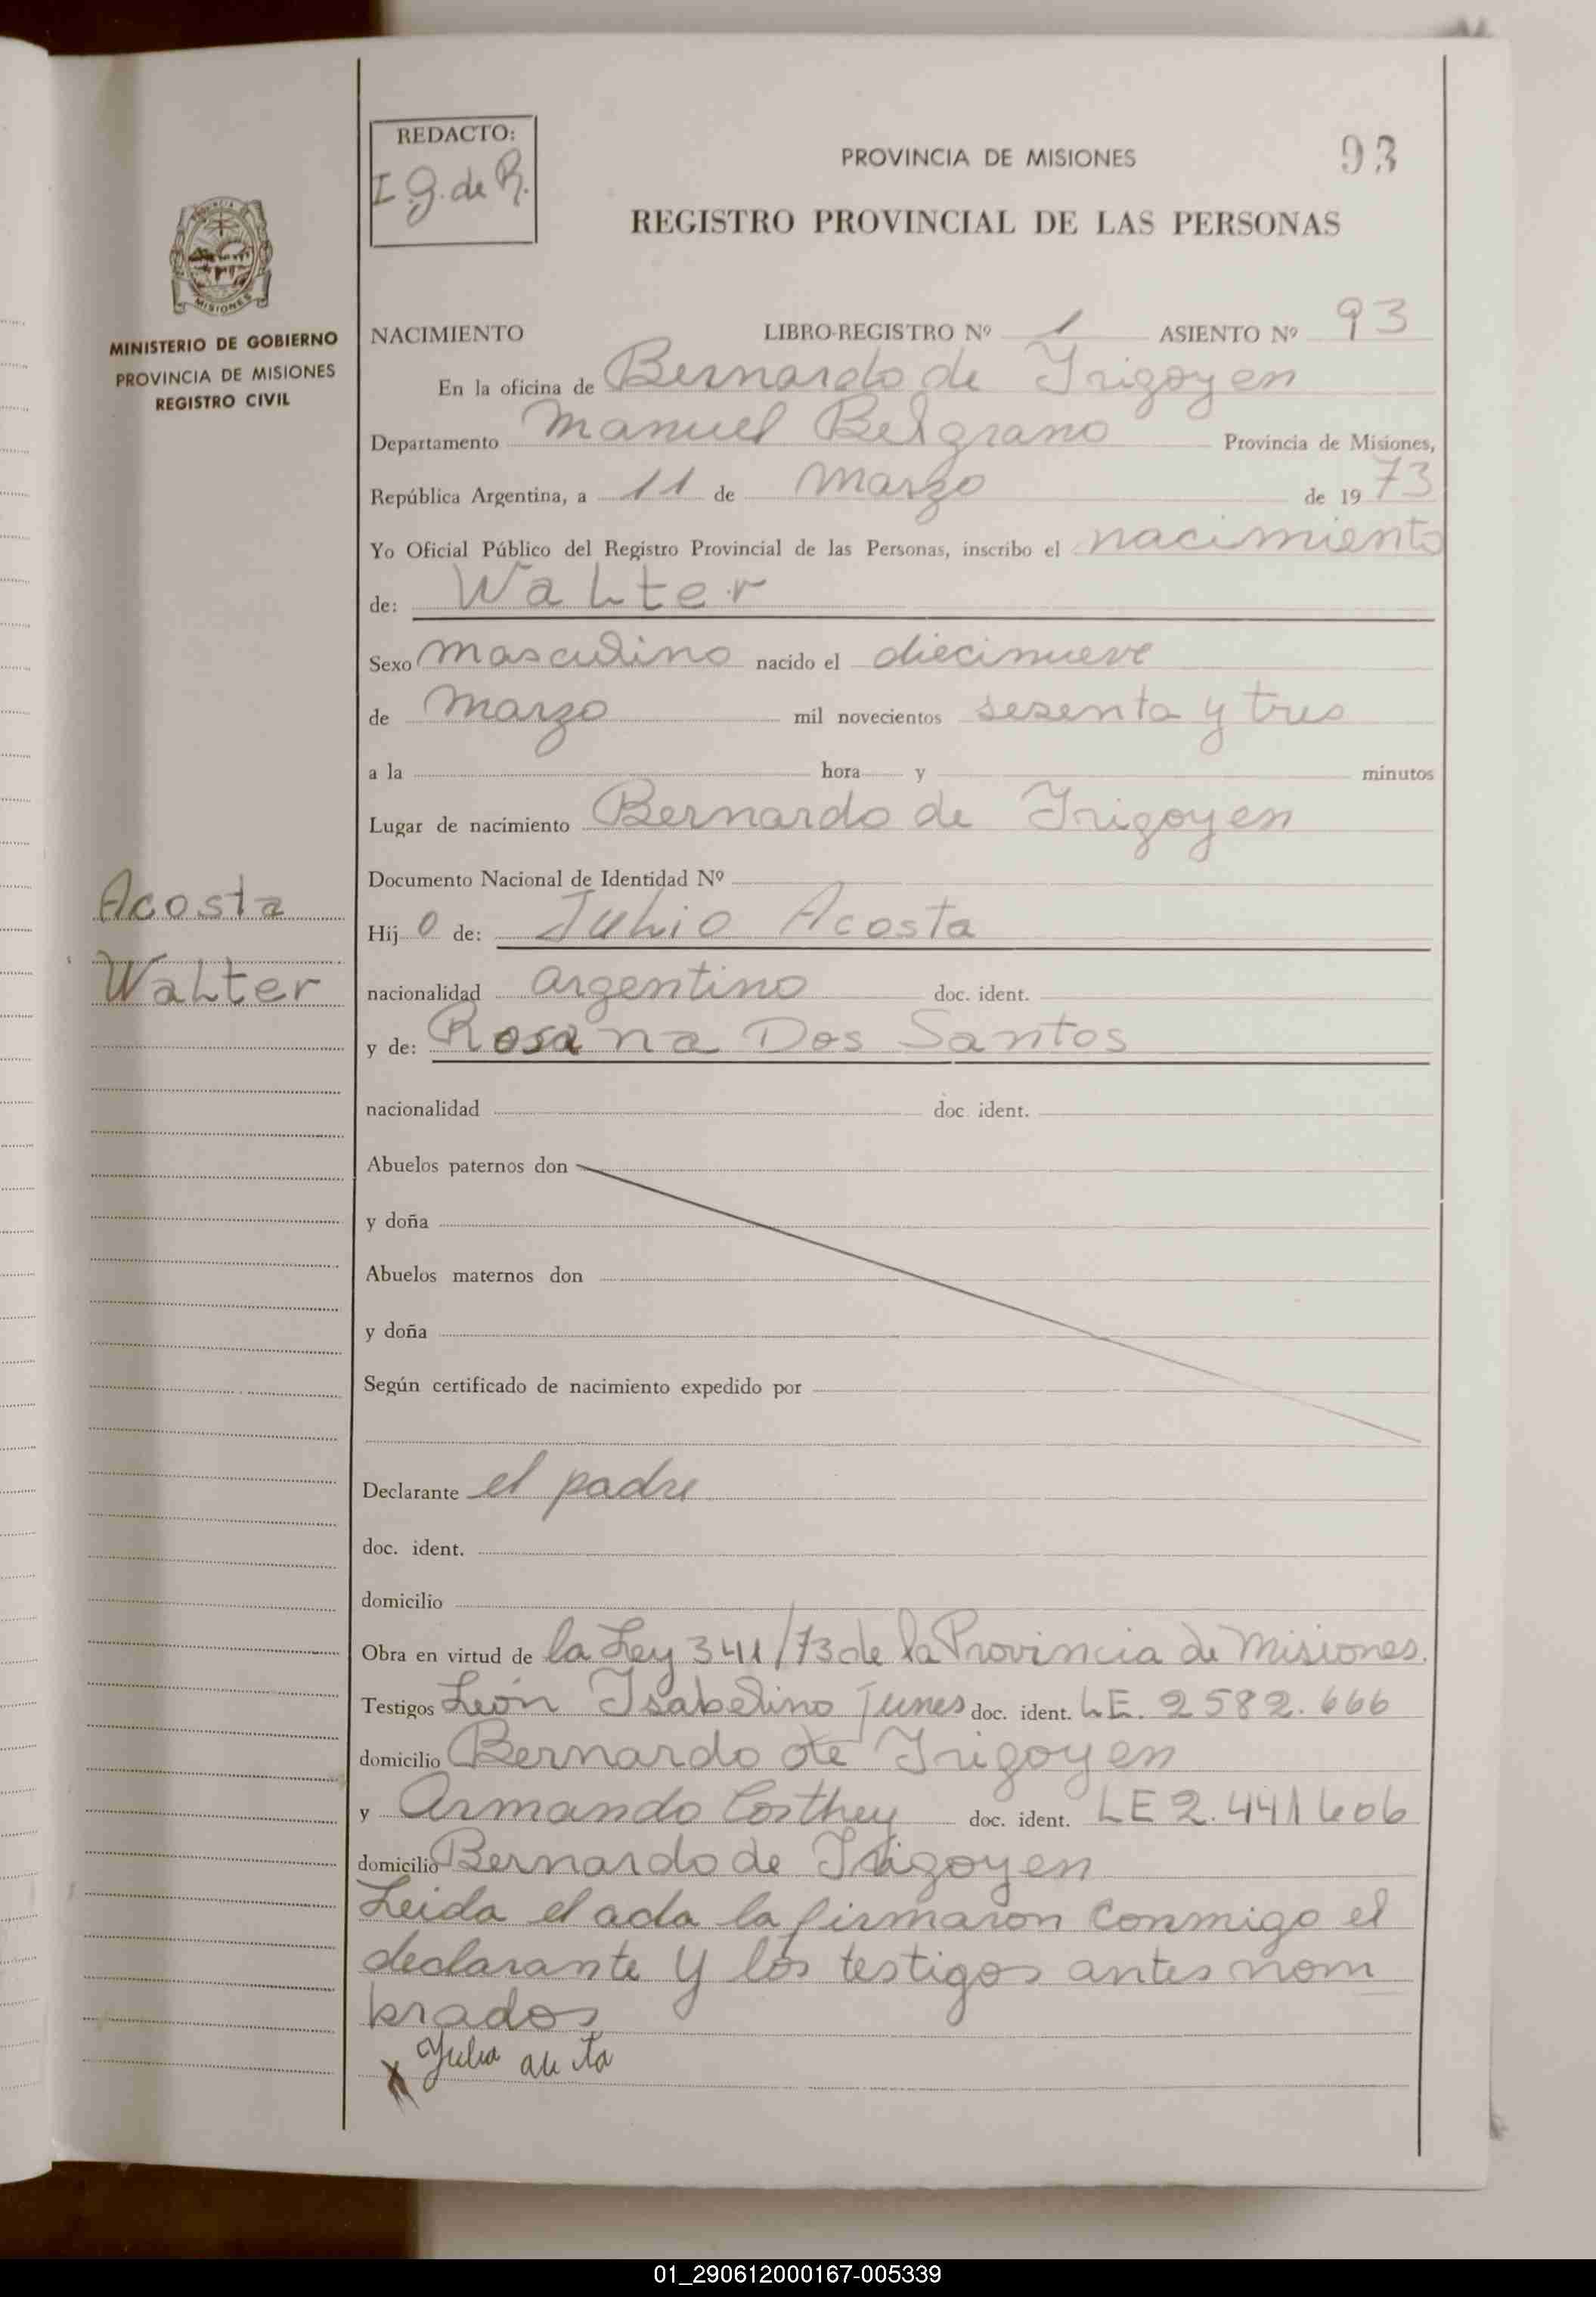 REDACTO:
I G. de R.
PROVINCIA DE MISIONES
93
REGISTRO PROVINCIAL DE LAS PERSONAS
MISIONES
MINISTERIO DE GOBIERNO
PROVINCIA DE MISIONES
REGISTRO CIVIL
NACIMIENTO LIBRO-REGISTRO Nº 1 ASIENTO Nº 93
En la oficina de Bernardo de Irigoyen
Departamento Manuel Belgrano Provincia de Misiones,
República Argentina, a 11 de Marzo de 1973
Yo Oficial Público del Registro Provincial de las Personas, inscribo el nacimiento
de: Walter
Sexo masculino nacido el diecinueve
de Marzo mil novecientos sesenta y tres
a la hora y minutos
Lugar de nacimiento Bernardo de Irigoyen
Documento Nacional de Identidad Nº
Acosta
Hijo de: Julio Acosta
Walter
nacionalidad argentino doc. ident.
y de: Rosana Dos Santos
nacionalidad doc. ident.
Abuelos paternos don
y doña
Abuelos maternos don
y doña
Según certificado de nacimiento expedido por
Declarante el padre
doc. ident.
domicilio
Obra en virtud de la Ley 341/73 de la Provincia de Misiones.
Testigos León Isabelino doc. ident. LE. 2582.666
domicilio Bernardo de Irigoyen
y Armando doc. ident. LE 2.441606
domicilio Bernardo de Irigoyen
Leida el acta la firmaron conmigo el
declarante y los testigos antes nom
brados
01_290612000167-005339